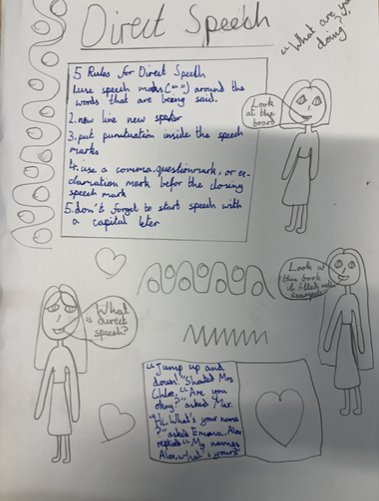 Direct Speech
"What are you
doing?"
5 Rules for Direct Speech
1.use speech marks(" ") around the
words that are being said.
2.new line new speker
3.put punuation inside the speech
marks
4.use a comma,questionmark, or ex-
clamation mark befor the closing
speech mark
5.don't forget to start speech with
a capital leter
Look
at the
board
Look at
this book
it filled with
examples
What
is direct
speech?
"Jump up and
down!" Shouted Mrs
Chloe. "Are you
okay?" asked Max.
"Hi. What's your name
?" asked Emma. Alex
replied "My names
Alex, what's yours"